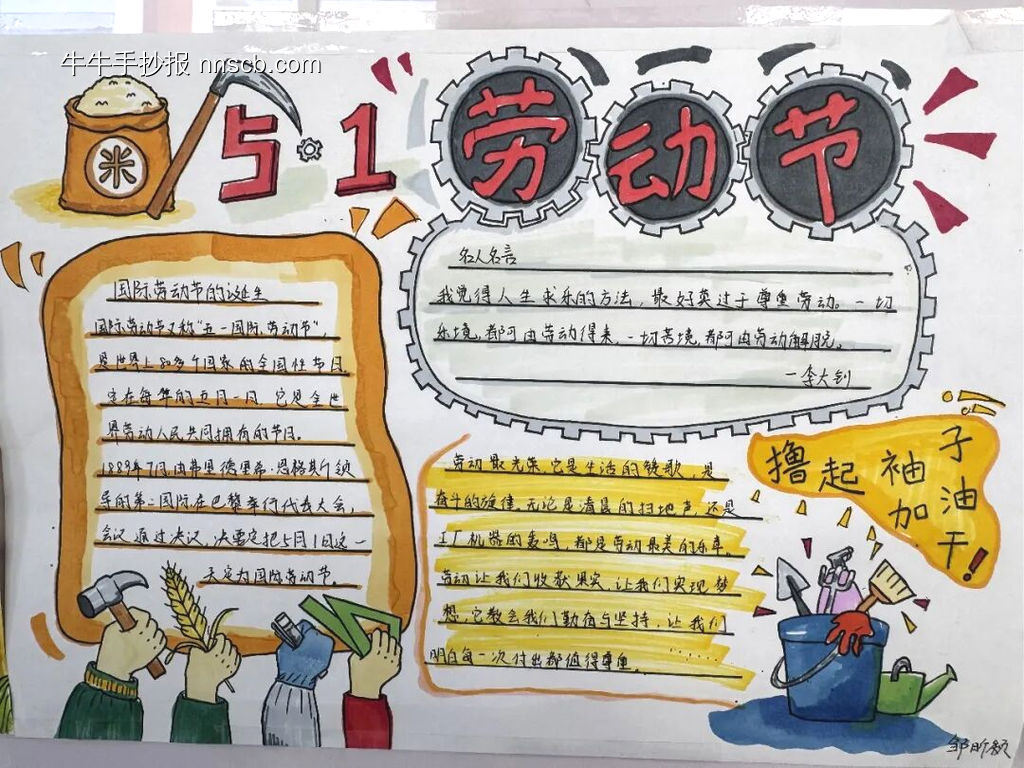 牛牛手抄报 nnscb.com
米
5·1
劳动节
名人名言
我觉得人生求乐的方法，最好莫过于尊重劳动。一切
乐境，都可由劳动得来，一切苦境，都可由劳动解脱。
—李大钊
国际劳动节的诞生
国际劳动节又称“五一国际劳动节”，
是世界上80多个国家的全国性节日
定在每年的五月一日 它是全世
界劳动人民共同拥有的节日。
1889年7月由弗里德里希·恩格斯领
导的第二国际在巴黎举行代表大会，
会议通过决议，决定把5月1日这一
天定为国际劳动节。
劳动最光荣 它是生活的赞歌，是
奋斗的旋律 无论是清晨的扫地声，还是
工厂机器的轰鸣，都是劳动最美的乐章。
劳动让我们收获果实，让我们实现梦
想，它教会我们勤奋与坚持，让我们
明白每一次付出都值得尊重 ......
撸起袖子
加油干！